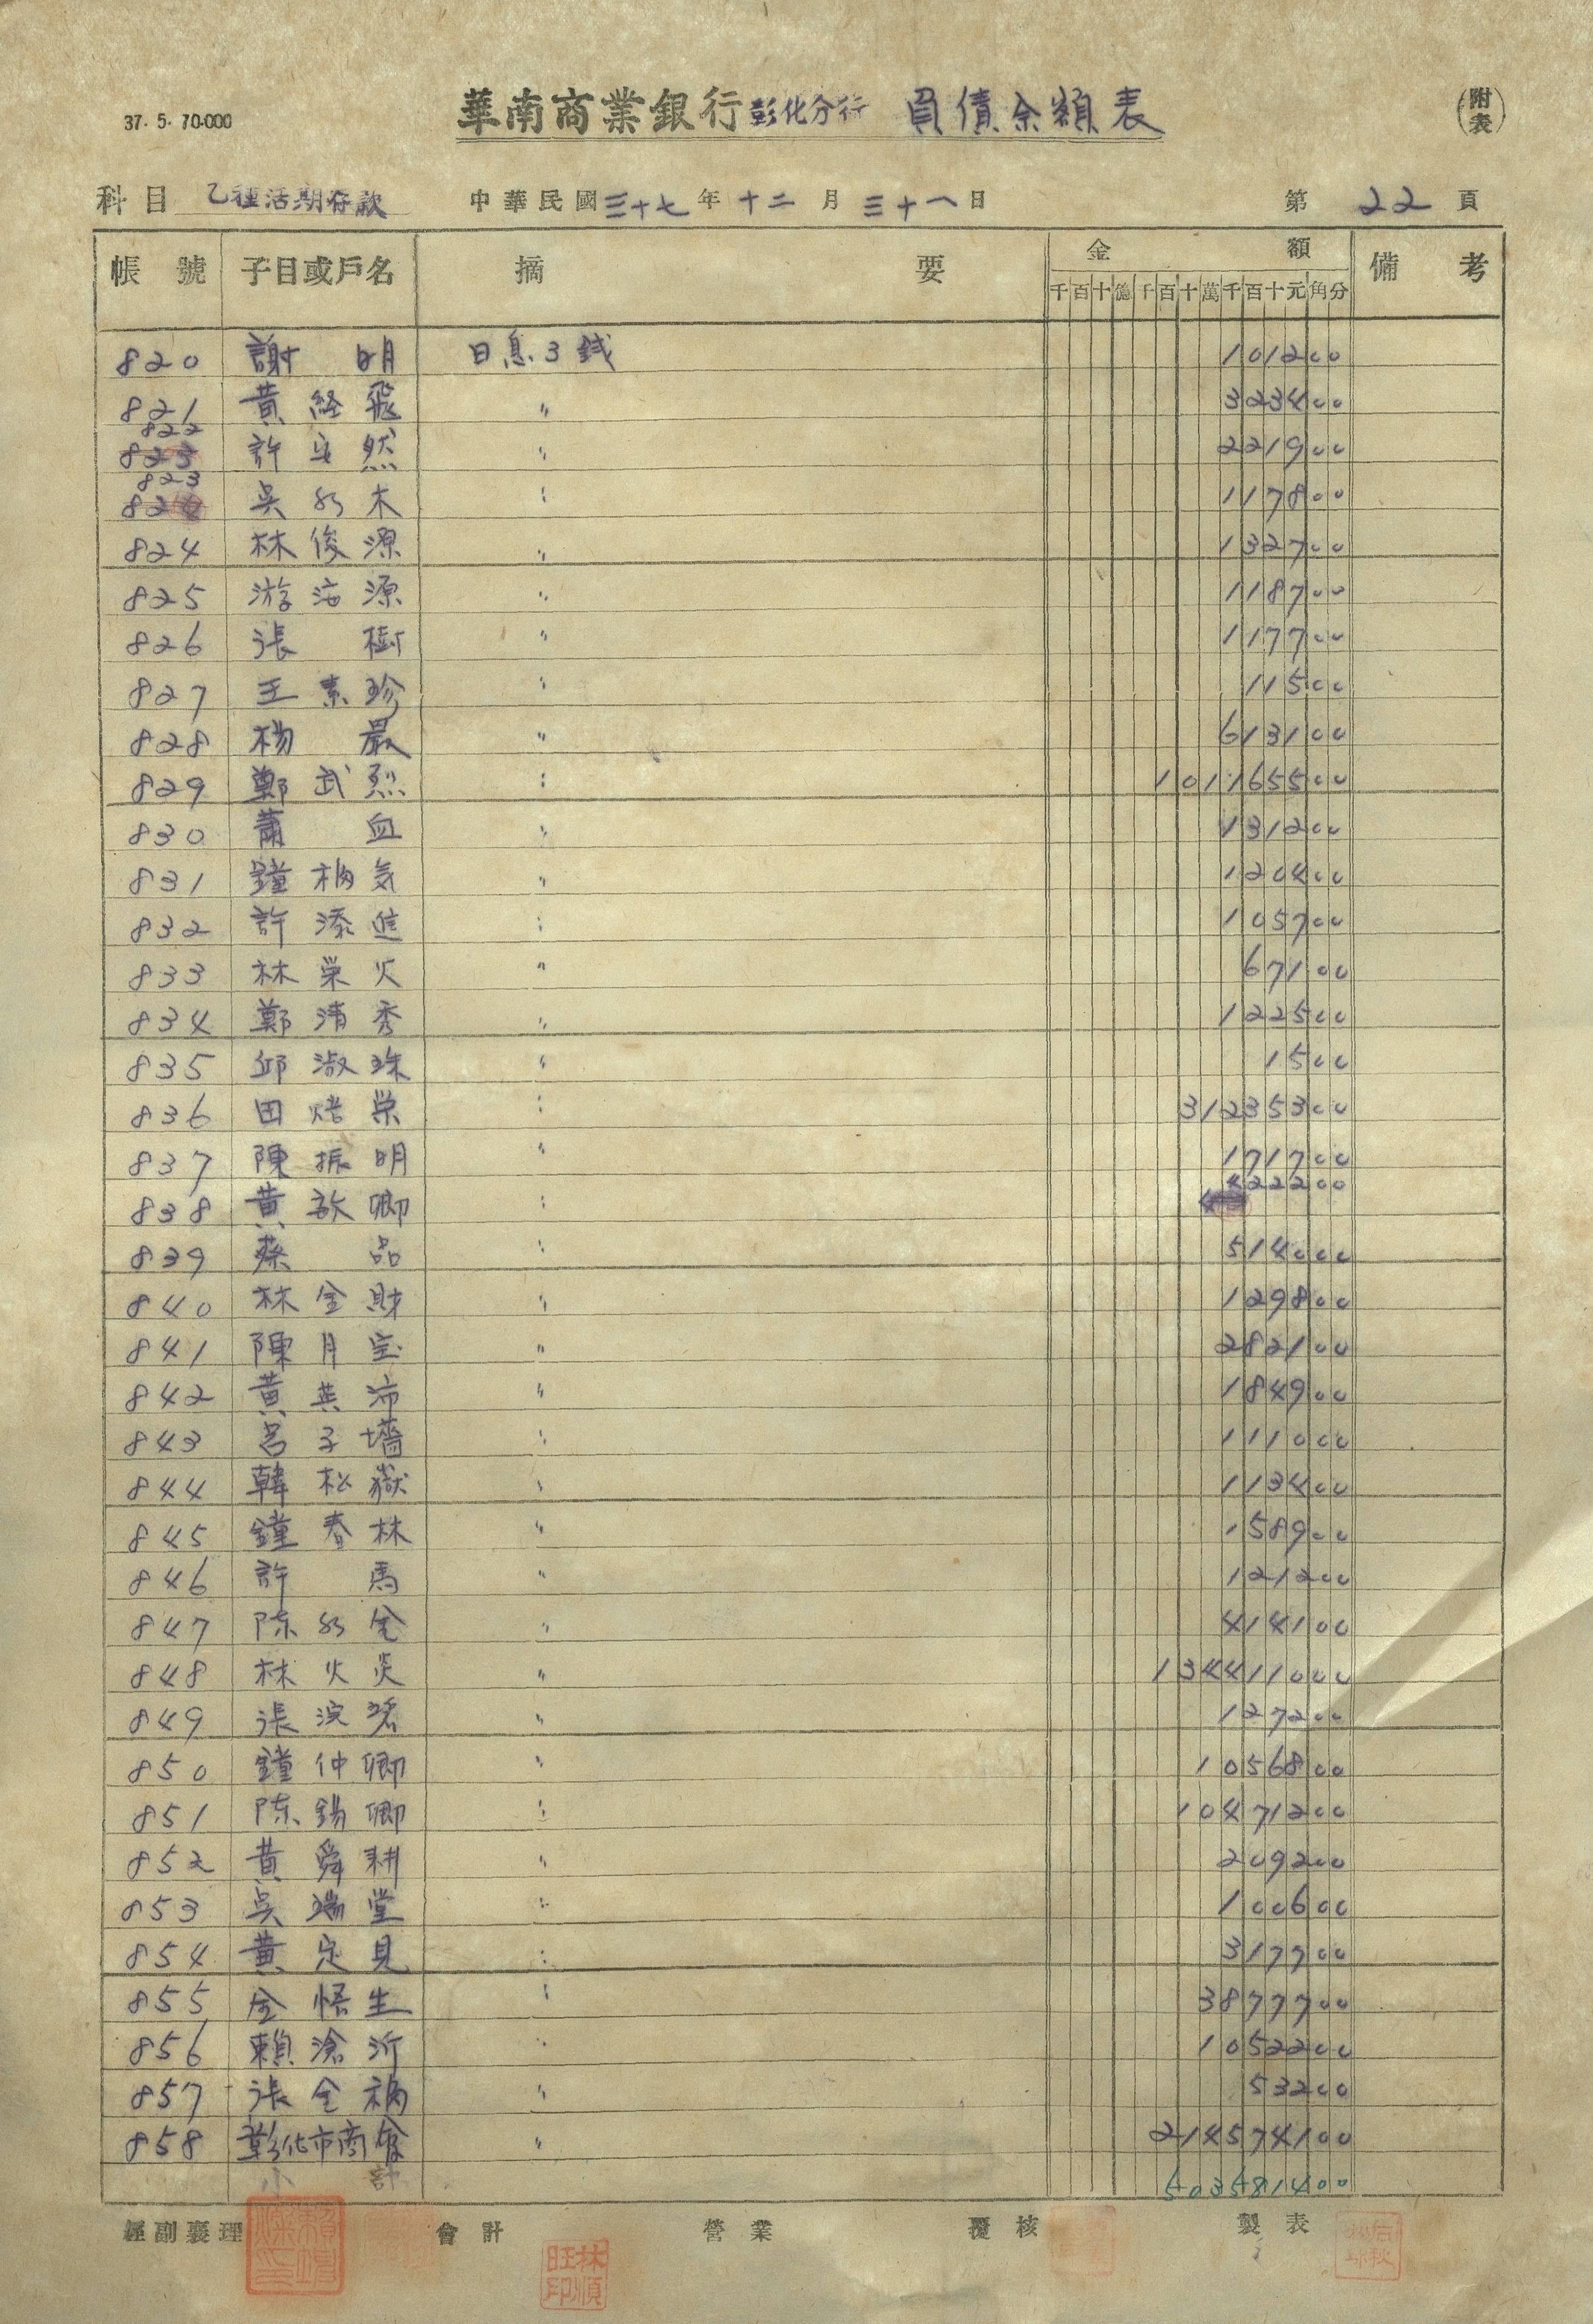 37. 5. 70.000
華南商業銀行彰化分行 負債余額表
(附表)
科目 乙種活期存款 中華民國三十七年十二月三十一日 第22頁
帳號 子目或戶名 摘要 金額 備考
千百十億千百十萬千百十元角分
820 謝明 日息3錢 101200
821 黃経飛 〃 323400
822 823 許安然 〃 221900
823 吳水木 〃 117800
824 林俊源 〃 132700
825 游海源 〃 118700
826 張樹 〃 117700
827 王素珍 〃 11500
828 楊嚴 〃 613100
829 鄭武烈 〃 101165500
830 蕭血 〃 131200
831 鐘柄気 〃 120400
832 許添進 〃 105700
833 林栄火 〃 67100
834 鄭清秀 〃 122500
835 邱淑珠 〃 1500
836 田焙栄 〃 31235300
837 陳振明 〃 171700
838 黃啟卿 〃 422200
839 蔡品 〃 514000
840 林金財 〃 129800
841 陳月宝 〃 282100
842 黃英沛 〃 184900
843 呂子墻 〃 111000
844 韓松嶽 〃 113400
845 鐘春林 〃 158900
846 許馬 〃 121200
847 陈水金 〃 414100
848 林火炎 〃 134411000
849 張浣 〃 127200
850 鐘仲卿 〃 1056800
851 陈錫卿 〃 10471200
852 黃舜耕 〃 209200
853 吳瑞堂 〃 100600
854 黃定見 〃 317700
855 金悟生 〃 3877700
856 賴滄沂 〃 1052200
857 張金 〃 53200
858 彰化市商會 〃 214574100
小計 503581400
經副襄理 會計 營業 覆核 製表
林順旺印